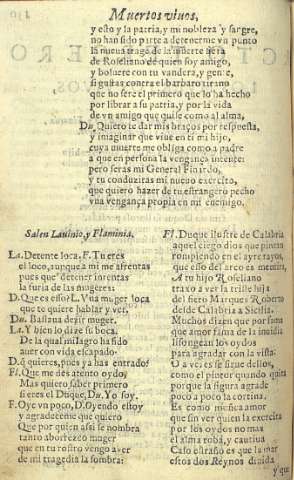 Muertos viuos,
y esto y la patria, y mi nobleza y sangre,
no han sido parte a detenerme vn punto
la nueua traga de la muerte fiera
de Roseliano de quien soy amigo,
y boluere con tu vandera, y gente,
si guías contra el barbaro tirano
que no sere el primero que lo ha hecho
por librar a su patria, y por la vida
de vn amigo que quise como al alma.
Du. Quiero te dar mis braços por respuesta,
y imaginar que viue en ti mi hijo,
cuya muerte me obliga como padre
a que en persona la vengança intente:
pero seras mi General Finardo,
y tu conduziras mi nueuo exercito,
que quiero hazer de tu estrangero pecho
vna vengança propia en mi enemigo.
Salen Lauinio, y Flaminia.
La. Detente loca. F. Tu eres
el loco, aunque a mi me afrentas
pues que detener intentas
la furia de las mugeres:
D. Que es esso? L. Vna muger loca
que te quiere hablar y ver,
Du. Bastaua dezir muger.
La. Y bien lo dize su boca.
De la qual milagro ha sido
auer con vida escapado.
D. q quieres, pues ya has entrado?
Fl. Que me des atento oydo,
Mas quiero saber primero
si eres el Duque, Du. Yo soy.
F. Oye vn poco, D. Oyendo estoy
y agradeceme que quiero
Que por quien assi se nombra
tanto aborrezco muger
que en tu rostro vengo a ver
de mi tragedia la sombra:
Fl. Duque ilustre de Calabria
aquel ciego dios que pintan
rompiendo en el ayre rayos,
que esso del arco es mentira,
A tu hijo Roseliano
traxo a ver la triste hija
del fiero Marques Roberto
desde Calabria a Sicilia.
Muchos dizen que por fama
que amor fama de la inuidia
lisongean los oydos
para agradar con la vista:
O a vezes se sigue dellos,
como el pintor quando quita
por que la figura agrade
poco a poco la cortina.
Es como musica amor
que sin ver quien la exercita
por los oydos no mas
el alma roba, y cautiua
Caso estraño es que la mar
estos dos Reynos diuida
y que